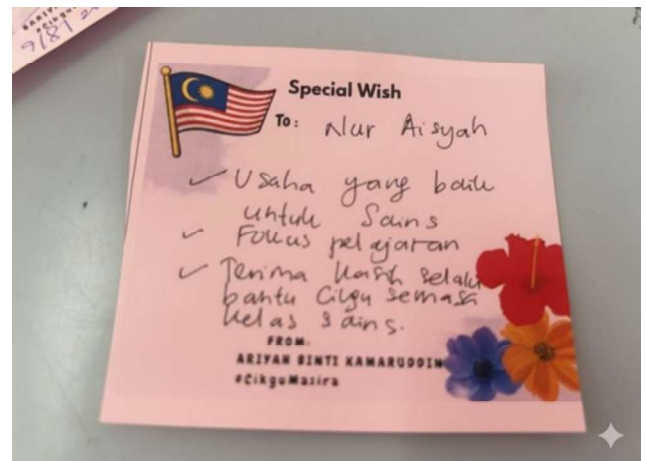 Special Wish
To: Nur Aisyah
✓ Usaha yang baik
untuk Sains
✓ Fokus pelajaran
✓ Terima kasih selalu
bantu Cikgu semasa
kelas sains.
FROM:
ARIYAH BINTI KAMARUDDIN
#CikguMasira